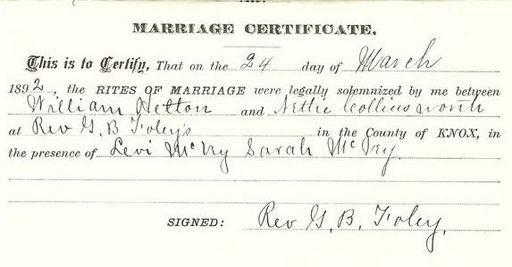 MARRIAGE CERTIFICATE.
This is to Certify, That on the 24 day of March
1892, the RITES OF MARRIAGE were legally solemnized by me between
William Hetton and Nettie Collinsworth
at Rev G. B Foley's in the County of KNOX, in
the presence of Levi McVey Sarah McVey.
SIGNED: Rev G. B. Foley,